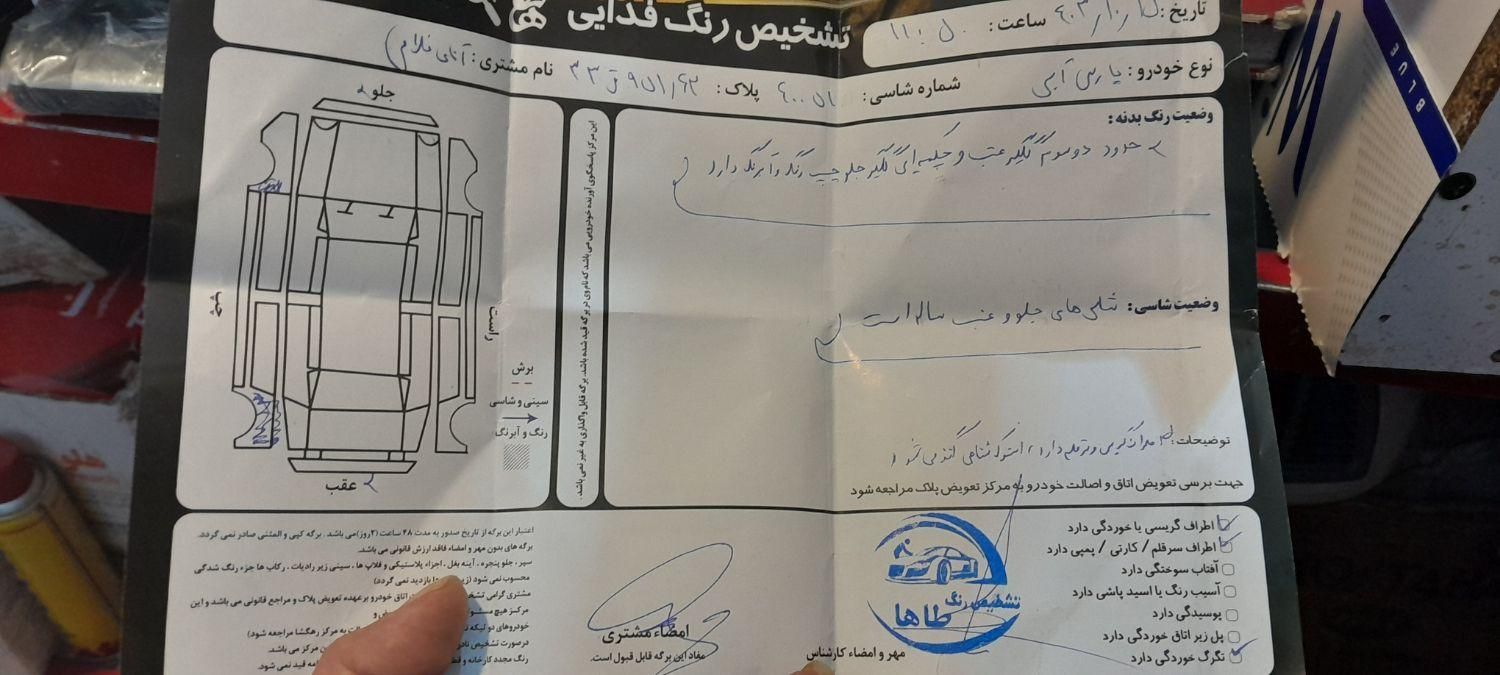 تشخیص رنگ فدایی
تاریخ: ۴۰۳/۱۰/۱۵ ساعت: ۱۱:۵۰
نوع خودرو: پارس آبی شماره شاسی: ۴۰۰۵۱ پلاک: نام مشتری: آقای
وضعیت رنگ بدنه:
حدود دو سوم گلگیر عقب و چکمه‌ای گلگیر جلو چپ رنگ و آبرنگ دارد
وضعیت شاسی: شاسی های جلو و عقب سالم است
توضیحات:
جهت برسی تعویض اتاق و اصالت خودرو به مرکز تعویض پلاک مراجعه شود
این مرکز پاسخگوی آورنده خودرویی می باشد که نام وی در برگه قید شده باشد. برگه قابل واگذاری به غیر نمی باشد.
جلو
چپ
راست
عقب
برش
سینی و شاسی
رنگ و آبرنگ
اطراف گریسی یا خوردگی دارد
اطراف سرقلم / کارتی / پمپی دارد
آفتاب سوختگی دارد
آسیب رنگ یا اسید پاشی دارد
پوسیدگی دارد
پل زیر اتاق خوردگی دارد
تگرگ خوردگی دارد
تشخیص رنگ
طاها
مهر و امضاء کارشناس
امضاء مشتری
مفاد این برگه قابل قبول است.
اعتبار این برگه از تاریخ صدور به مدت ۴۸ ساعت (۲روز)می باشد. برگه کپی و المثنی صادر نمی گردد.
برگه های بدون مهر و امضاء فاقد ارزش قانونی می باشد.
سپر، جلو پنجره، آینه بغل، اجزاء پلاستیکی و فلاپ ها، سینی زیر رادیات، رکاب ها جزء رنگ شدگی
محسوب نمی شود بازدید نمی گردد)
مشتری گرامی اتاق خودرو بر عهده تعویض پلاک و مراجع قانونی می باشد و این
مرکز هیچ
خودروهای دو تیکه به مرکز رهگشا مراجعه شود)
درصورت تشخیص مرکز می باشد.
رنگ مجدد کارخانه و قید نمی شود.
BLUE